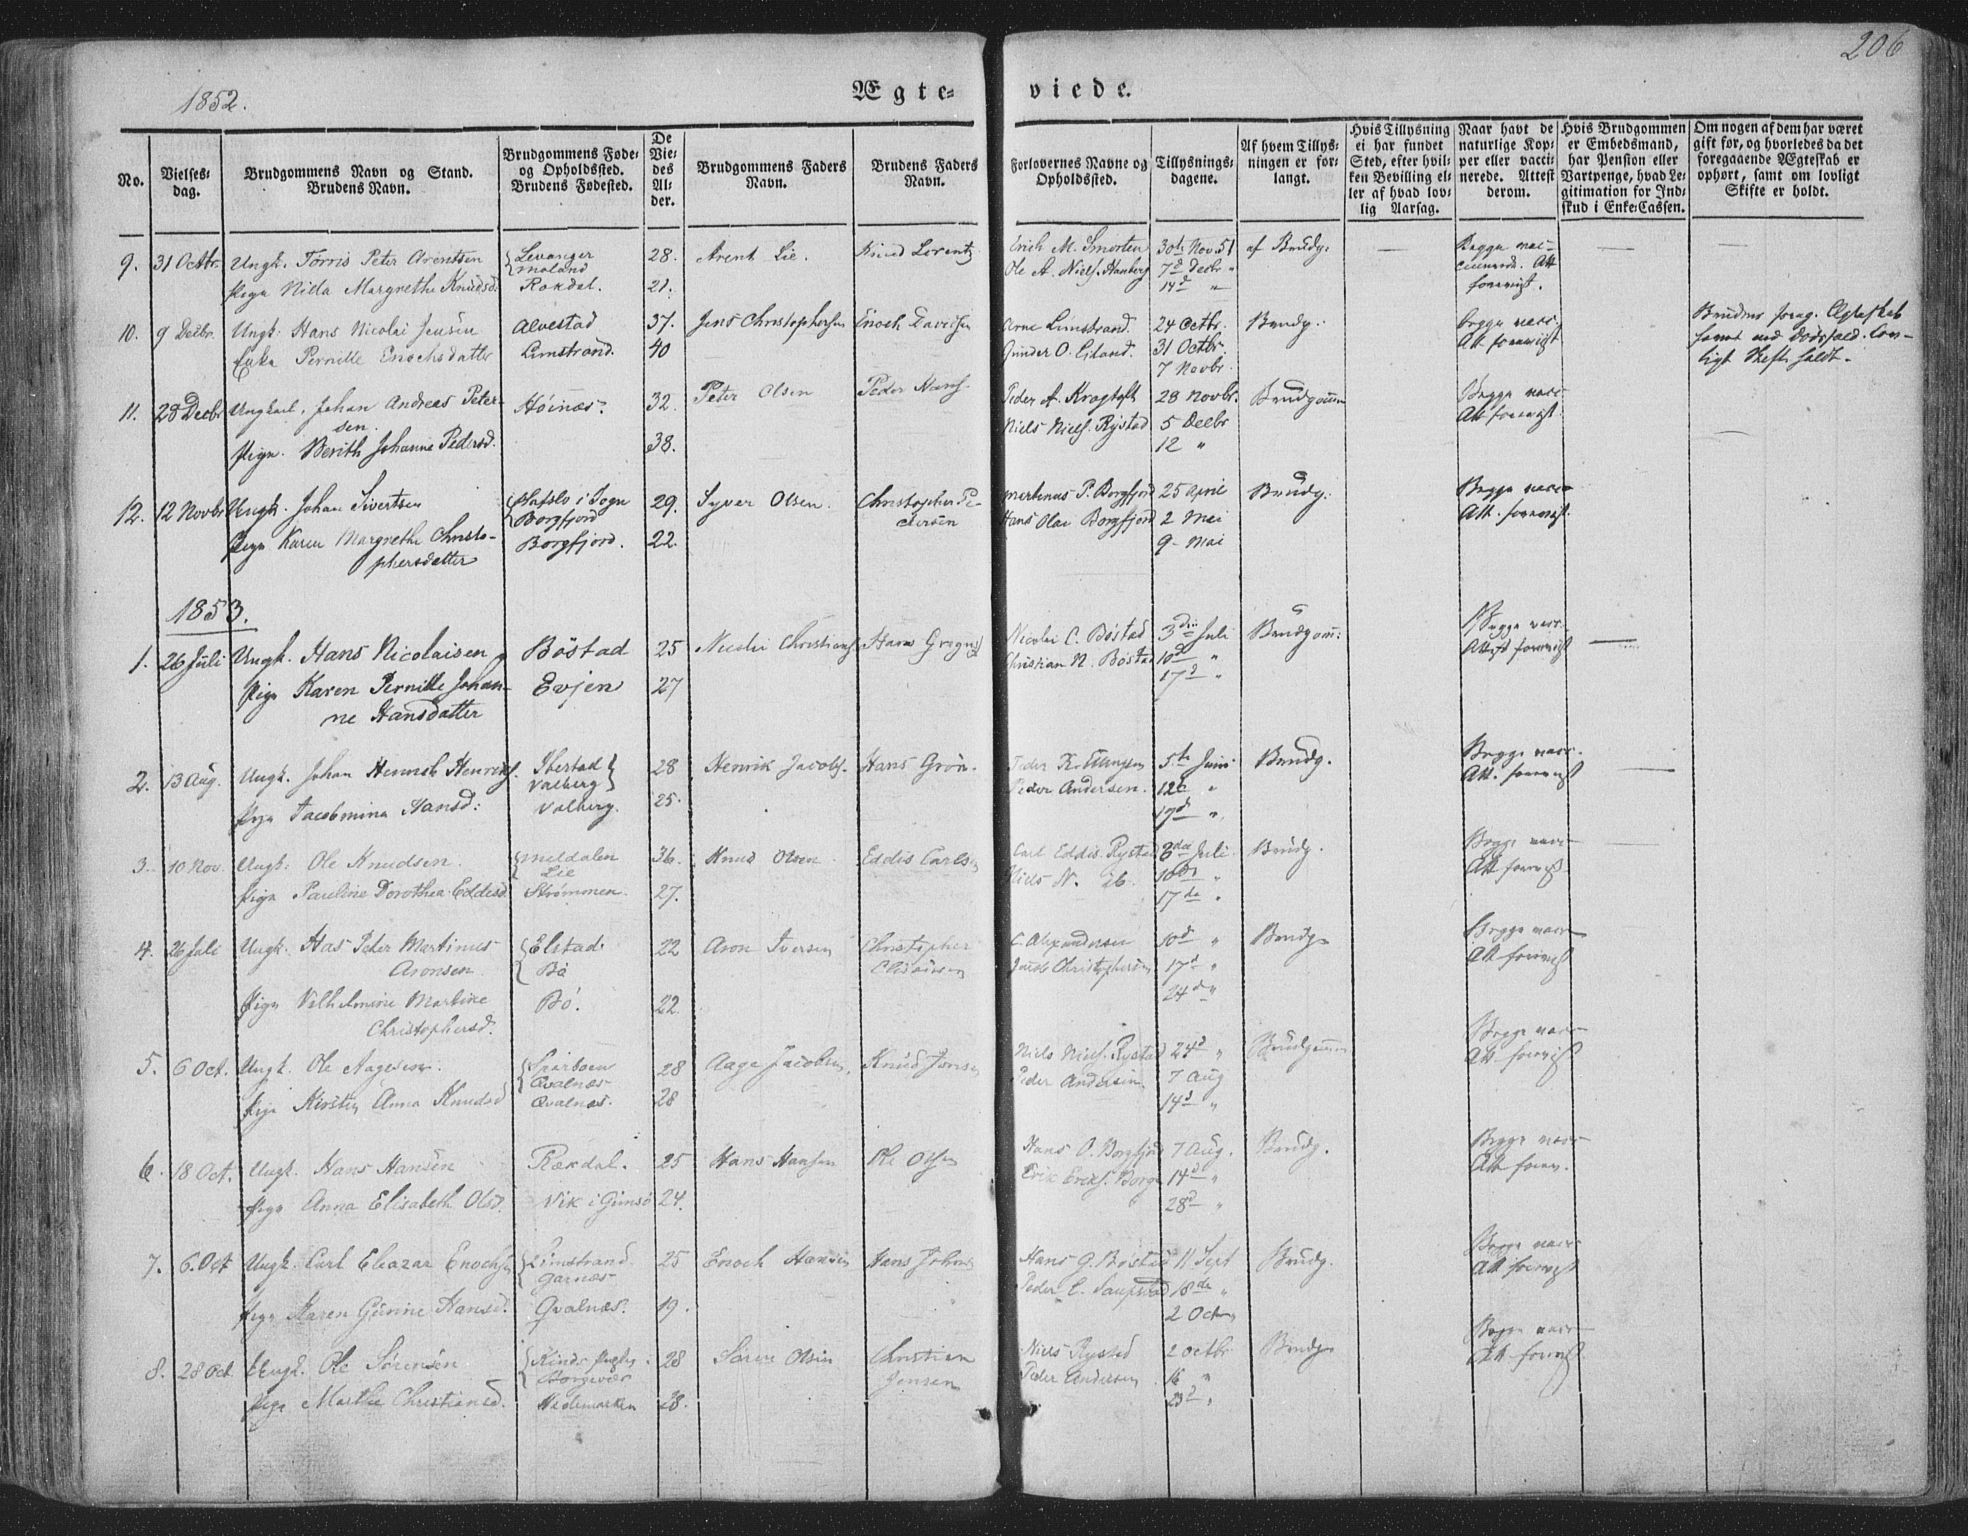 206
1852.
Ægte- viede.
No.
Vielses-
dag.
Brudgommens Navn og Stand.
Brudens Navn.
Brudgommens Føde-
og Opholdssted.
Brudens Fødested.
De
Vie-
des
Al-
der.
Brudgommens Faders
Navn.
Brudens Faders
Navn.
Forlovernes Navne og
Opholdssted.
Tillysnings-
dagene.
Af hvem Tillys-
ningen er for-
langt.
Hvis Tillysning
ei har fundet
Sted, efter hvil-
ken Bevilling el-
ler af hvad lov-
lig Aarsag.
Naar havt de
naturlige Kop-
per eller vacci-
nerede. Attest
derom.
Hvis Brudgommen
er Embedsmand,
har Pension eller
Vartpenge, hvad Le-
gitimation for Ind-
skud i Enke-Cassen.
Om nogen af dem har været
gift før, og hvorledes da det
foregaaende Ægteskab er
ophørt, samt om lovligt
Skifte er holdt.
9. 31 Octbr. Ungk. Torris Peter Arentsen Levanger 28. Arent Lie. Knud Lorentz Erich M. Smorten 30te Nov 51 af Brudg.
Moland Ole A. Niels. Hanberg 7d Decbr "
Pige Nilla Margrethe Knudsd. Rokdal. 21. 14d "
10. 9 Decbr. Ungk. Hans Nicolai Jensen Alvestad 37. Jens Christophersen Enoch Davidsen Arne Limstrand. 24 Octbr. Brudg. Begge vacc.
Enke Pernille Enochsdatter Limstrand. 40 Gunder O. Eiland. 31 Octbr. Att forevist
7 Novbr.
Brudens foreg. Ægteskab
hævet ved Dødsfald. Lov-
ligt Skifte holdt.
11. 28 Decbr Ungkarl. Johan Andreas Peter- Høinæs. 32. Peter Olsen Peder Hans. Peder A. Kragtoft 28 Novbr. Brudgommen Begge vacc.
sen. Niels Niels. Rystad 5 Decbr Att forevist.
Pige. Berith Johanne Pedersd. 38. 12 "
12. 12 Novbr Ungk. Johan Sivertsen Hafslo i Sogn 29. Syver Olsen. Christopher Pe- Martenus P. Borgfjord 25 April Brudg. Begge vacc.
Borgfjord dersen Hans Olai Borgfjord 2 Mai Att. forevist.
Pige Karen Margrethe Christo- Borgfjord. 22. 9 Mai
phersdatter
1853.
1. 26 Juli Ungk. Hans Nicolaisen Böstad 25 Nicolai Christians. Hans Gregus Nicolai C. Böstad 3die Juli Brudgom: Begge vacc.
Christian N. Böstad 10d " Attest forevist
Pige Karen Pernille Johan- Evjen 27 17d "
ne Hansdatter
2. 13 Aug. Ungk. Johan Henrich Henriks. Ibestad 28 Henrik Jacobs. Hans Grön. 5te Juni Brudg. Begge vacc.
Valberg Peder Andersen. 12te " Att. forevist
Pige Jacobmina Hansd: Valberg. 25. 17d "
3. 10 Nov. Ungk. Ole Knudsen. Meldalen 36. Knud Olsen Eddis Carls. Carl Eddis. Rystad 3die Juli Brudg. Begge vacc.
Lie Niels N. ib. 10de " Att forevist.
Pige Pauline Dorothea Eddisd Strømmen. 27. 17de "
4. 26 Juli Ungk. Has Peter Martinus Elstad 22 Aron Iversen Christopher C. Alexandersen 10d " Brudg. Begge vacc.
Aronsen Bö Jacob Christophersen 17d " Att forevist
Pige Vilhelmine Martine Bö. 22. 24d "
Christophersd.
5. 6 Oct. Ungk. Ole Agesen. Sparboen 28 Aage Jacobsen, Knud Jonsen Niels Niels. Rystad 24d " Brudgommen Begge vacc.
Qvalnæs Peder Andersen 7 Aug Att forevist
Pige Kirsten Anna Knudsd Qvalnæs. 28 14d "
6. 18 Oct. Ungk. Hans Hansen Rækdal. 25 Hans Hansen Ole Olsen Hans O. Borgfjord 7 Aug. Brudg. Begge vacc.
Erik Eriks. Borge 14d " Att forev.
Pige Anna Elisabeth Olsd. Vik i Gimsö 24. 28d "
7. 6. Oct Ungk. Carl Eleazar Enochsen Limstrand 25 Enoch Hansen Hans Johns Hans G. Böstad 11 Sept Brudg. Begge vacc.
Garnæs Peder E. Saupstad 18de " Att forevist
Pige Karen Gurine Hansd. Qvalnæs. 19. 2 Octr
8. 28 Oct Ungk. Ole Sörensen 28 Sören Olsen Christian Niels Rystad 2 Octbr Brudg. Begge vacc.
Borgevær Jensen Peder Andersen 16 " Att forevist.
Pige Marthe Christiansd. Hedemarken 28. 23d "